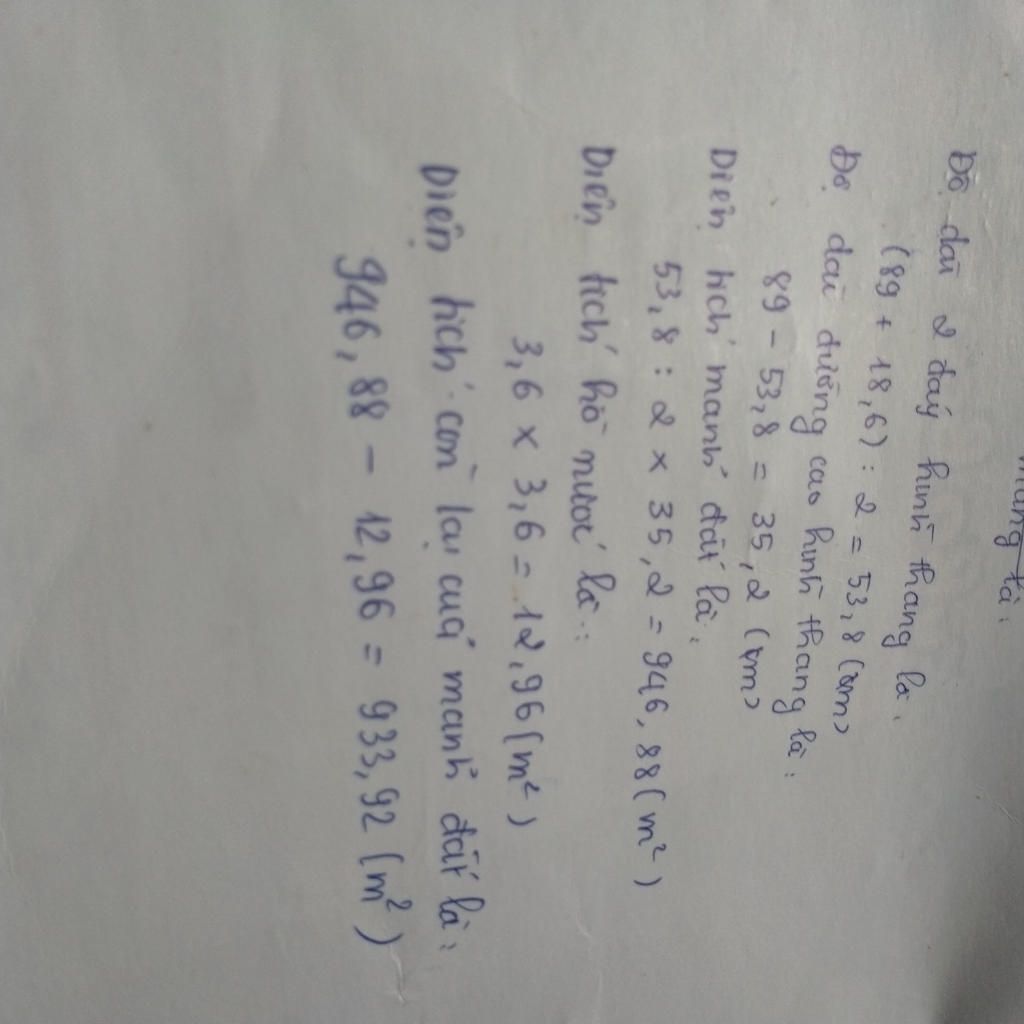 là:
Độ dài 2 đáy hình thang là:
(89 + 18,6) : 2 = 53,8 (m)
Độ dài đường cao hình thang là:
89 - 53,8 = 35,2 (m)
Diện tích mảnh đất là:
53,8 : 2 x 35,2 = 946,88 (m²)
Diện tích hồ nước là:
3,6 x 3,6 = 12,96 (m²)
Diện tích còn lại của mảnh đất là:
946,88 - 12,96 = 933,92 (m²)